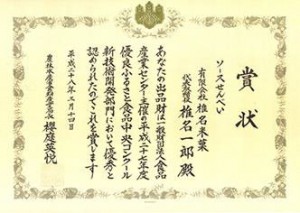 賞状
ソースせんべい
有限会社 椎名米菓
代表取締役 椎名一郎 殿
あなたの出品財は一般財団法人食品
産業センター主催の平成二十七年度
優良ふるさと食品中央コンクール
新技術開発部門において優秀と
認められたのでこれを賞します
平成二十八年三月十四日
農林水産省食料産業局長 櫻庭英悦